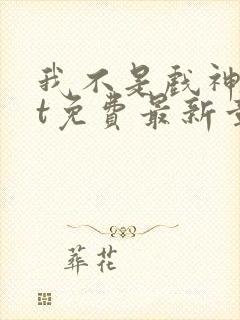 我不是戏神
t免费最新章
葬花